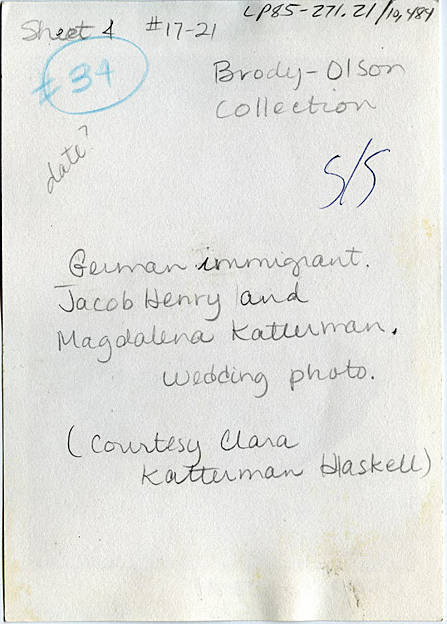 Sheet 4 #17-21 LP85-271.21/10,484
#34
Brody-Olson
Collection
date?
S/S
German immigrant.
Jacob Henry and
Magdalena Katterman.
Wedding photo.
(Courtesy Clara
Katterman Haskell)